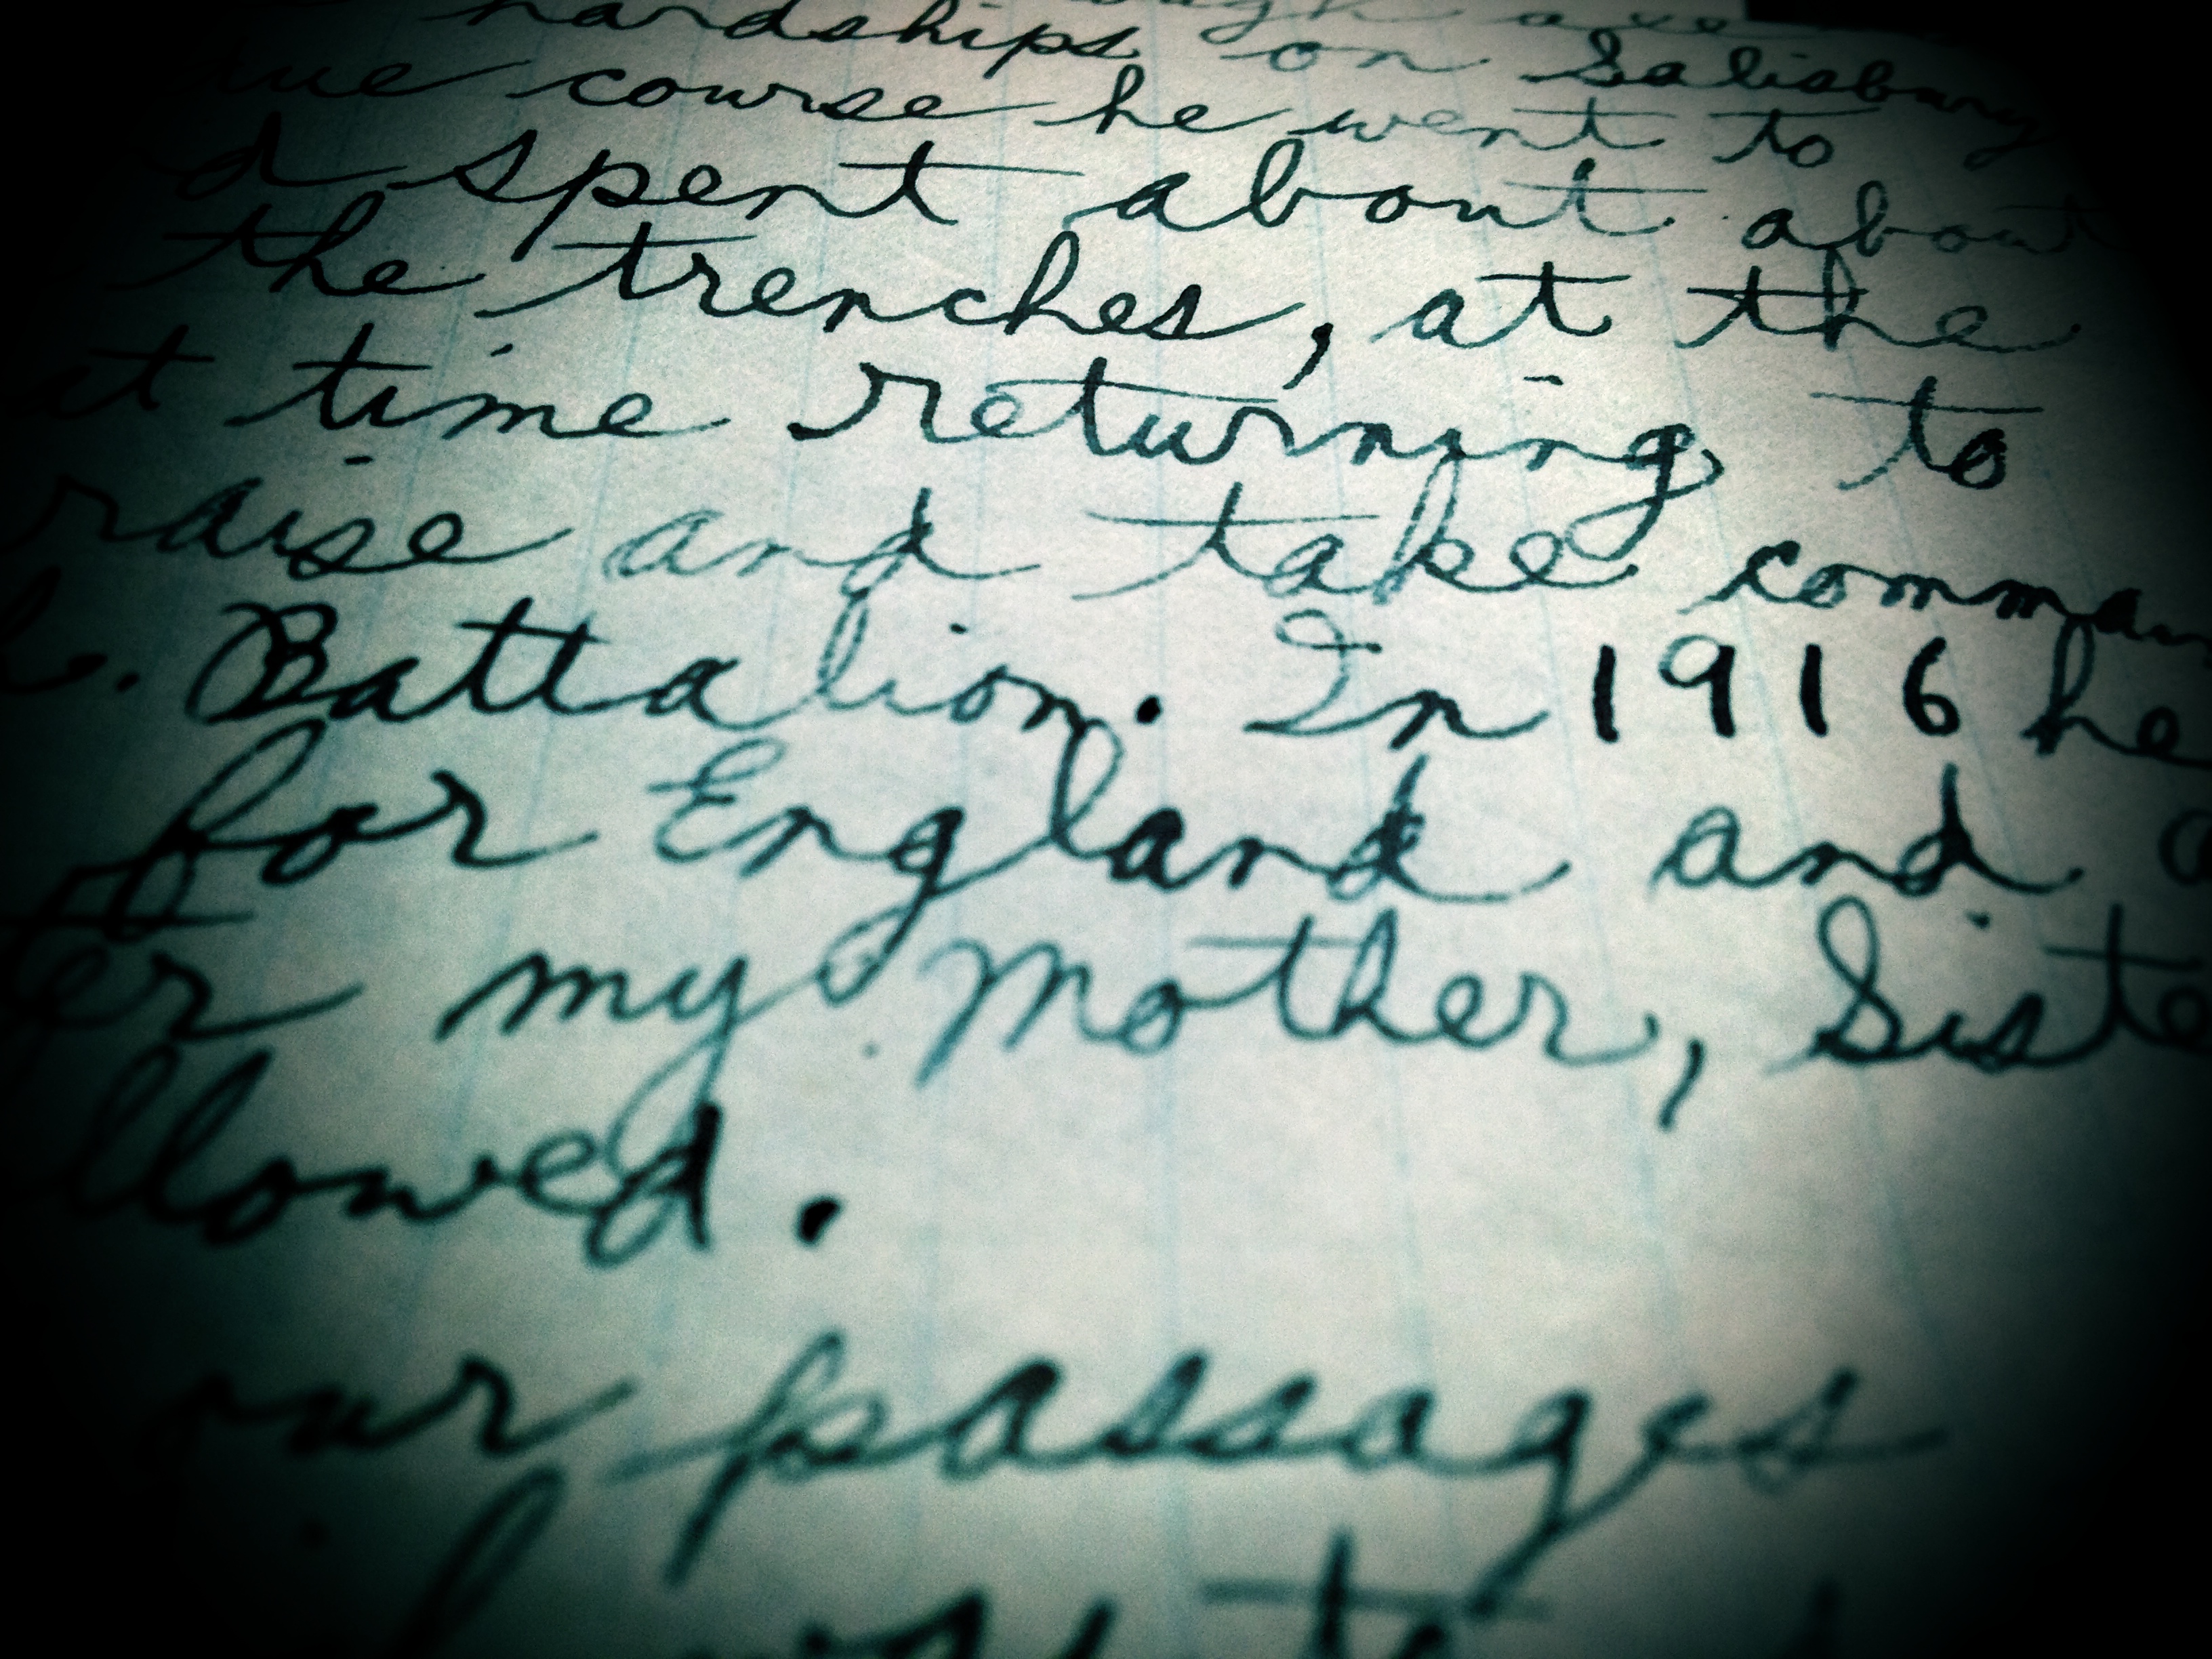 hardships on Salisbury
due course he went to
spent about about
the trenches, at the
time returning to
raise and take comman
Battalion. In 1916 he
for England and
er my Mother, Siste
llowed.
our passages